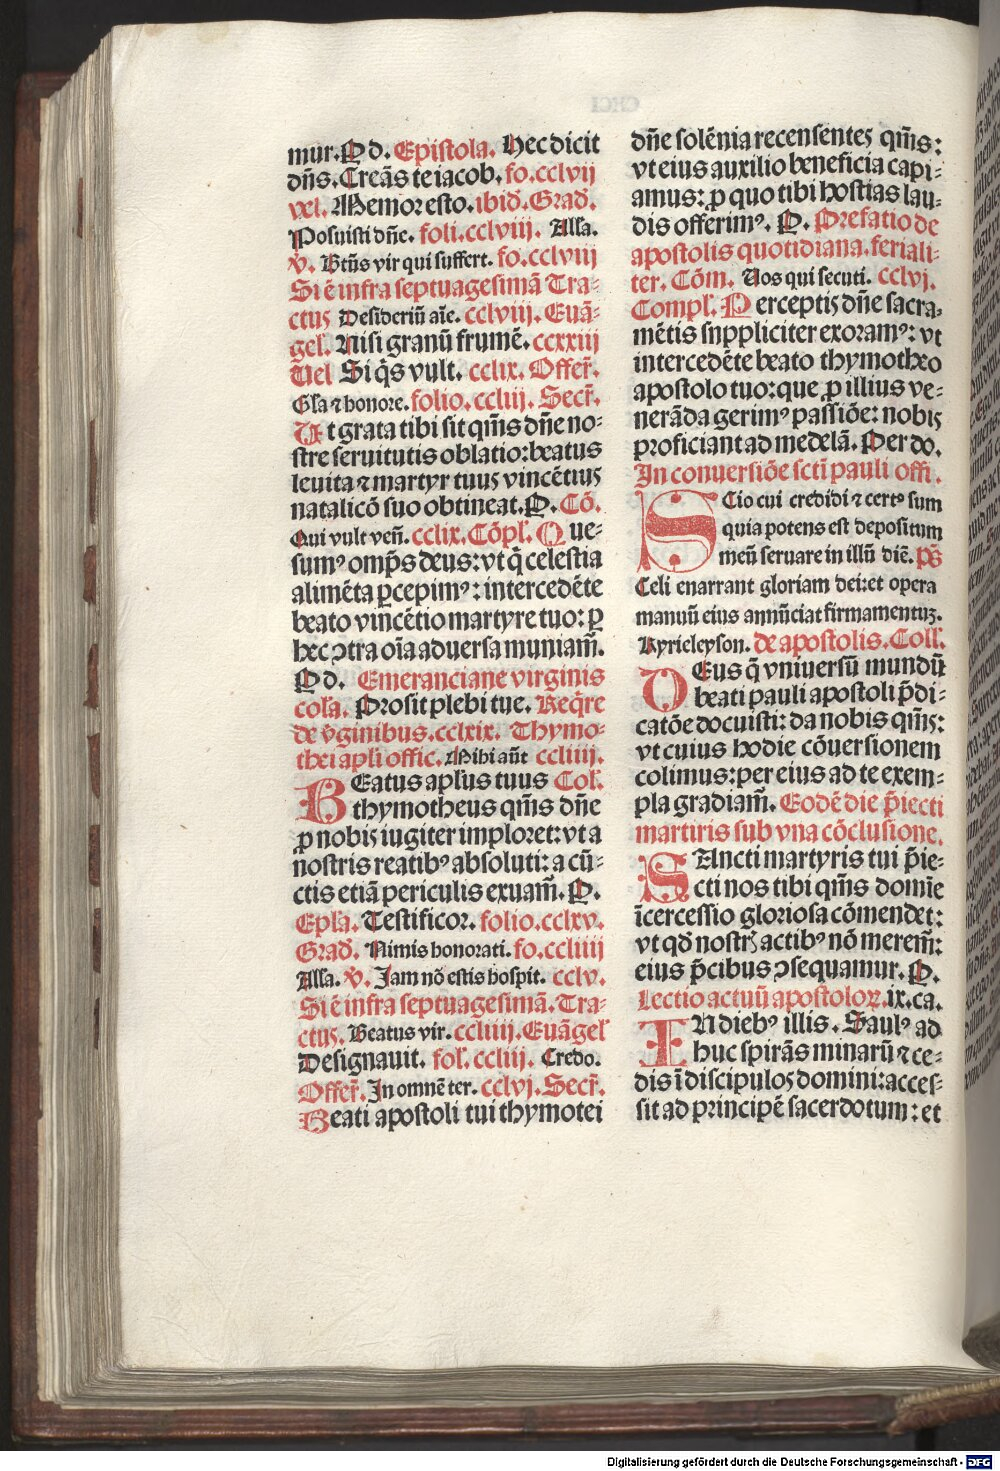 mur. P d. Epistola. Hec dicit
dn̄s. Creās te iacob. fo. cclvij
vel. Memor esto. ibid̄. Grad̄.
Posuisti dn̄e. foli. cclviij. Alla.
v̄. Btūs vir qui suffert. fo. cclviij
Si ē infra septuagesimā Tra-
ctus Desideriū aīe. cclviij. Euā-
gel̄. Nisi granū frumē. ccxxiij
Uel Si q̄s vult. cclix. Offer̄.
Gl̄a ⁊ honore. folio. ccliij. Secr̄.
Ut grata tibi sit qm̄s dn̄e no-
stre seruitutis oblatio: beatus
leuita ⁊ martyr tuus vincētius
natalicō suo obtineat. P. Cō.
Qui vult ven̄. cclix. Cōpl̄. Que-
sumꝰ omp̄s deus: vt q̄ celestia
alimēta ꝑcepimꝰ: intercedēte
beato vincētio martyre tuo: ꝑ
hec ↄtra oīa aduersa muniam̄.
P d. Emeranciane virginis
cola. Prosit plebi tue. Req̄re
de v̄ginibus. cclxix. Thymo-
thei apl̄i offic. Mihi aūt ccliiij.
BEatus apl̄us tuus Col̄.
thymotheus qm̄s dn̄e
ꝓ nobis iugiter imploret: vt a
nostris reatibꝰ absoluti: a cū-
ctis etiā periculis exuam̄. P.
Epl̄a. Testificor. folio. cclxv.
Grad̄. Nimis honorati. fo. ccliiij
Alla. v̄. Jam nō estis hospit. cclv.
Si ē infra septuagesimā. Tra-
ctus. Beatus vir. ccliiij. Euāgel̄
Designauit. fol̄. ccliij. Credo.
Offer̄. In omnē ter. cclvj. Secr̄.
Beati apostoli tui thymotei
dn̄e solēnia recensentes qm̄s:
vt eius auxilio beneficia capi-
amus: ꝓ quo tibi hostias lau-
dis offerimꝰ. P. Prefatio de
apostolis quotidiana. feriali-
ter. Cōm. Uos qui secuti. cclvj.
Compl̄. Perceptis dn̄e sacra-
mētis snppliciter exoramꝰ: vt
intercedēte beato thymotheo
apostolo tuo: que ꝓ illius ve-
nerāda gerimꝰ passiōe: nobis
proficiant ad medelā. Per do.
In conuersiōe scti pauli offi.
SCio cui credidi ⁊ certꝰ sum
quia potens est depositum
meū seruare in illū diē. ps̄
Celi enarrant gloriam dei: et opera
manuū eius annūciat firmamentuꝫ.
Kyrieleyson. de apostolis. Coll̄.
DEus q̄ vniuersū mundū
beati pauli apostoli p̄di-
catōe docuisti: da nobis qm̄s:
vt cuius hodie cōuersionem
colimus: per eius ad te exem-
pla gradiam̄. Eodē die p̄iecti
martiris sub vna cōclusione.
SAncti martyris tui p̄ie-
cti nos tibi qm̄s domīe
īcercessio gloriosa cōmendet:
vt qd̄ nostrꝭ actibꝰ nō merem̄:
eius p̄cibus ↄsequamur. P.
Lectio actuū apostoloꝝ. ix. ca.
IN diebꝰ illis. Saulꝰ ad
huc spirās minarū ⁊ ce-
dis ī discipulos domini: acces-
sit ad principē sacerdotum: et
Digitalisierung gefördert durch die Deutsche Forschungsgemeinschaft - DFG